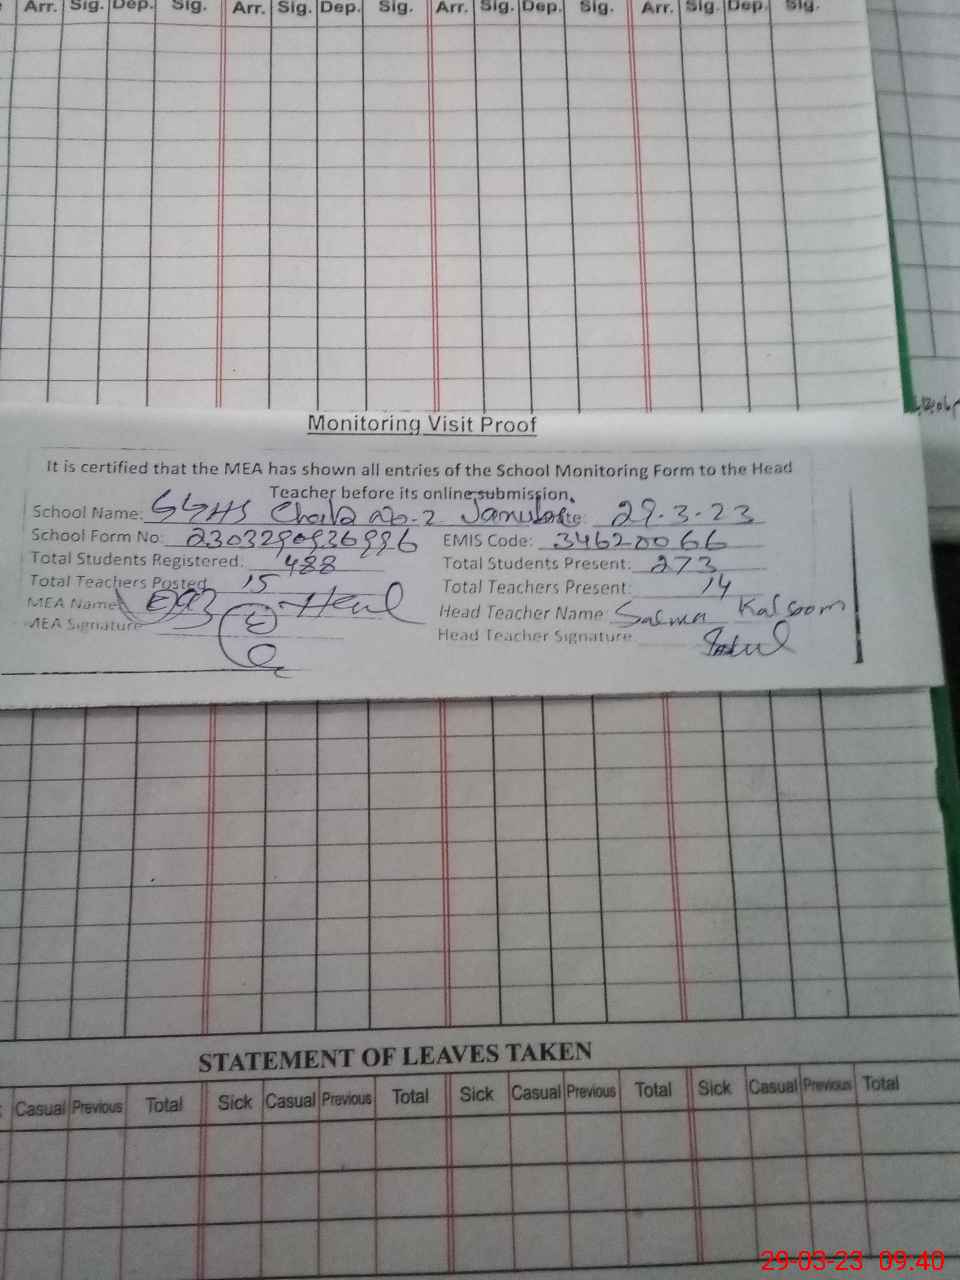 Arr. Sig. Dep. Sig. Arr. Sig. Dep. Sig. Arr. Sig. Dep. Sig. Arr. Sig. Dep. Sig.
Monitoring Visit Proof
It is certified that the MEA has shown all entries of the School Monitoring Form to the Head
Teacher before its online submission.
School Name: GGHS No-2 Date: 29-3-23
School Form No: EMIS Code: 34620066
Total Students Registered: 488 Total Students Present: 273
Total Teachers Posted 15 Total Teachers Present: 14
MEA Name: Head Teacher Name: Salma Kalsoom
MEA Signature Head Teacher Signature
STATEMENT OF LEAVES TAKEN
Casual Previous Total Sick Casual Previous Total Sick Casual Previous Total Sick Casual Previous Total
29-03-23 09.40